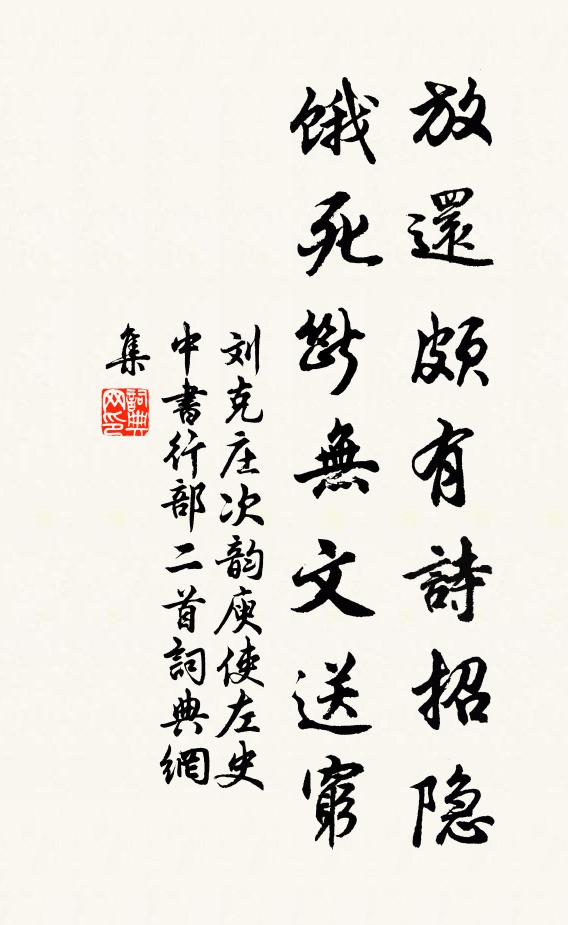 放還頗有詩招隐
餓死斷無文送窮
刘克庄次韵庾使左史
中書行部二首詞典網
集
詞典网印